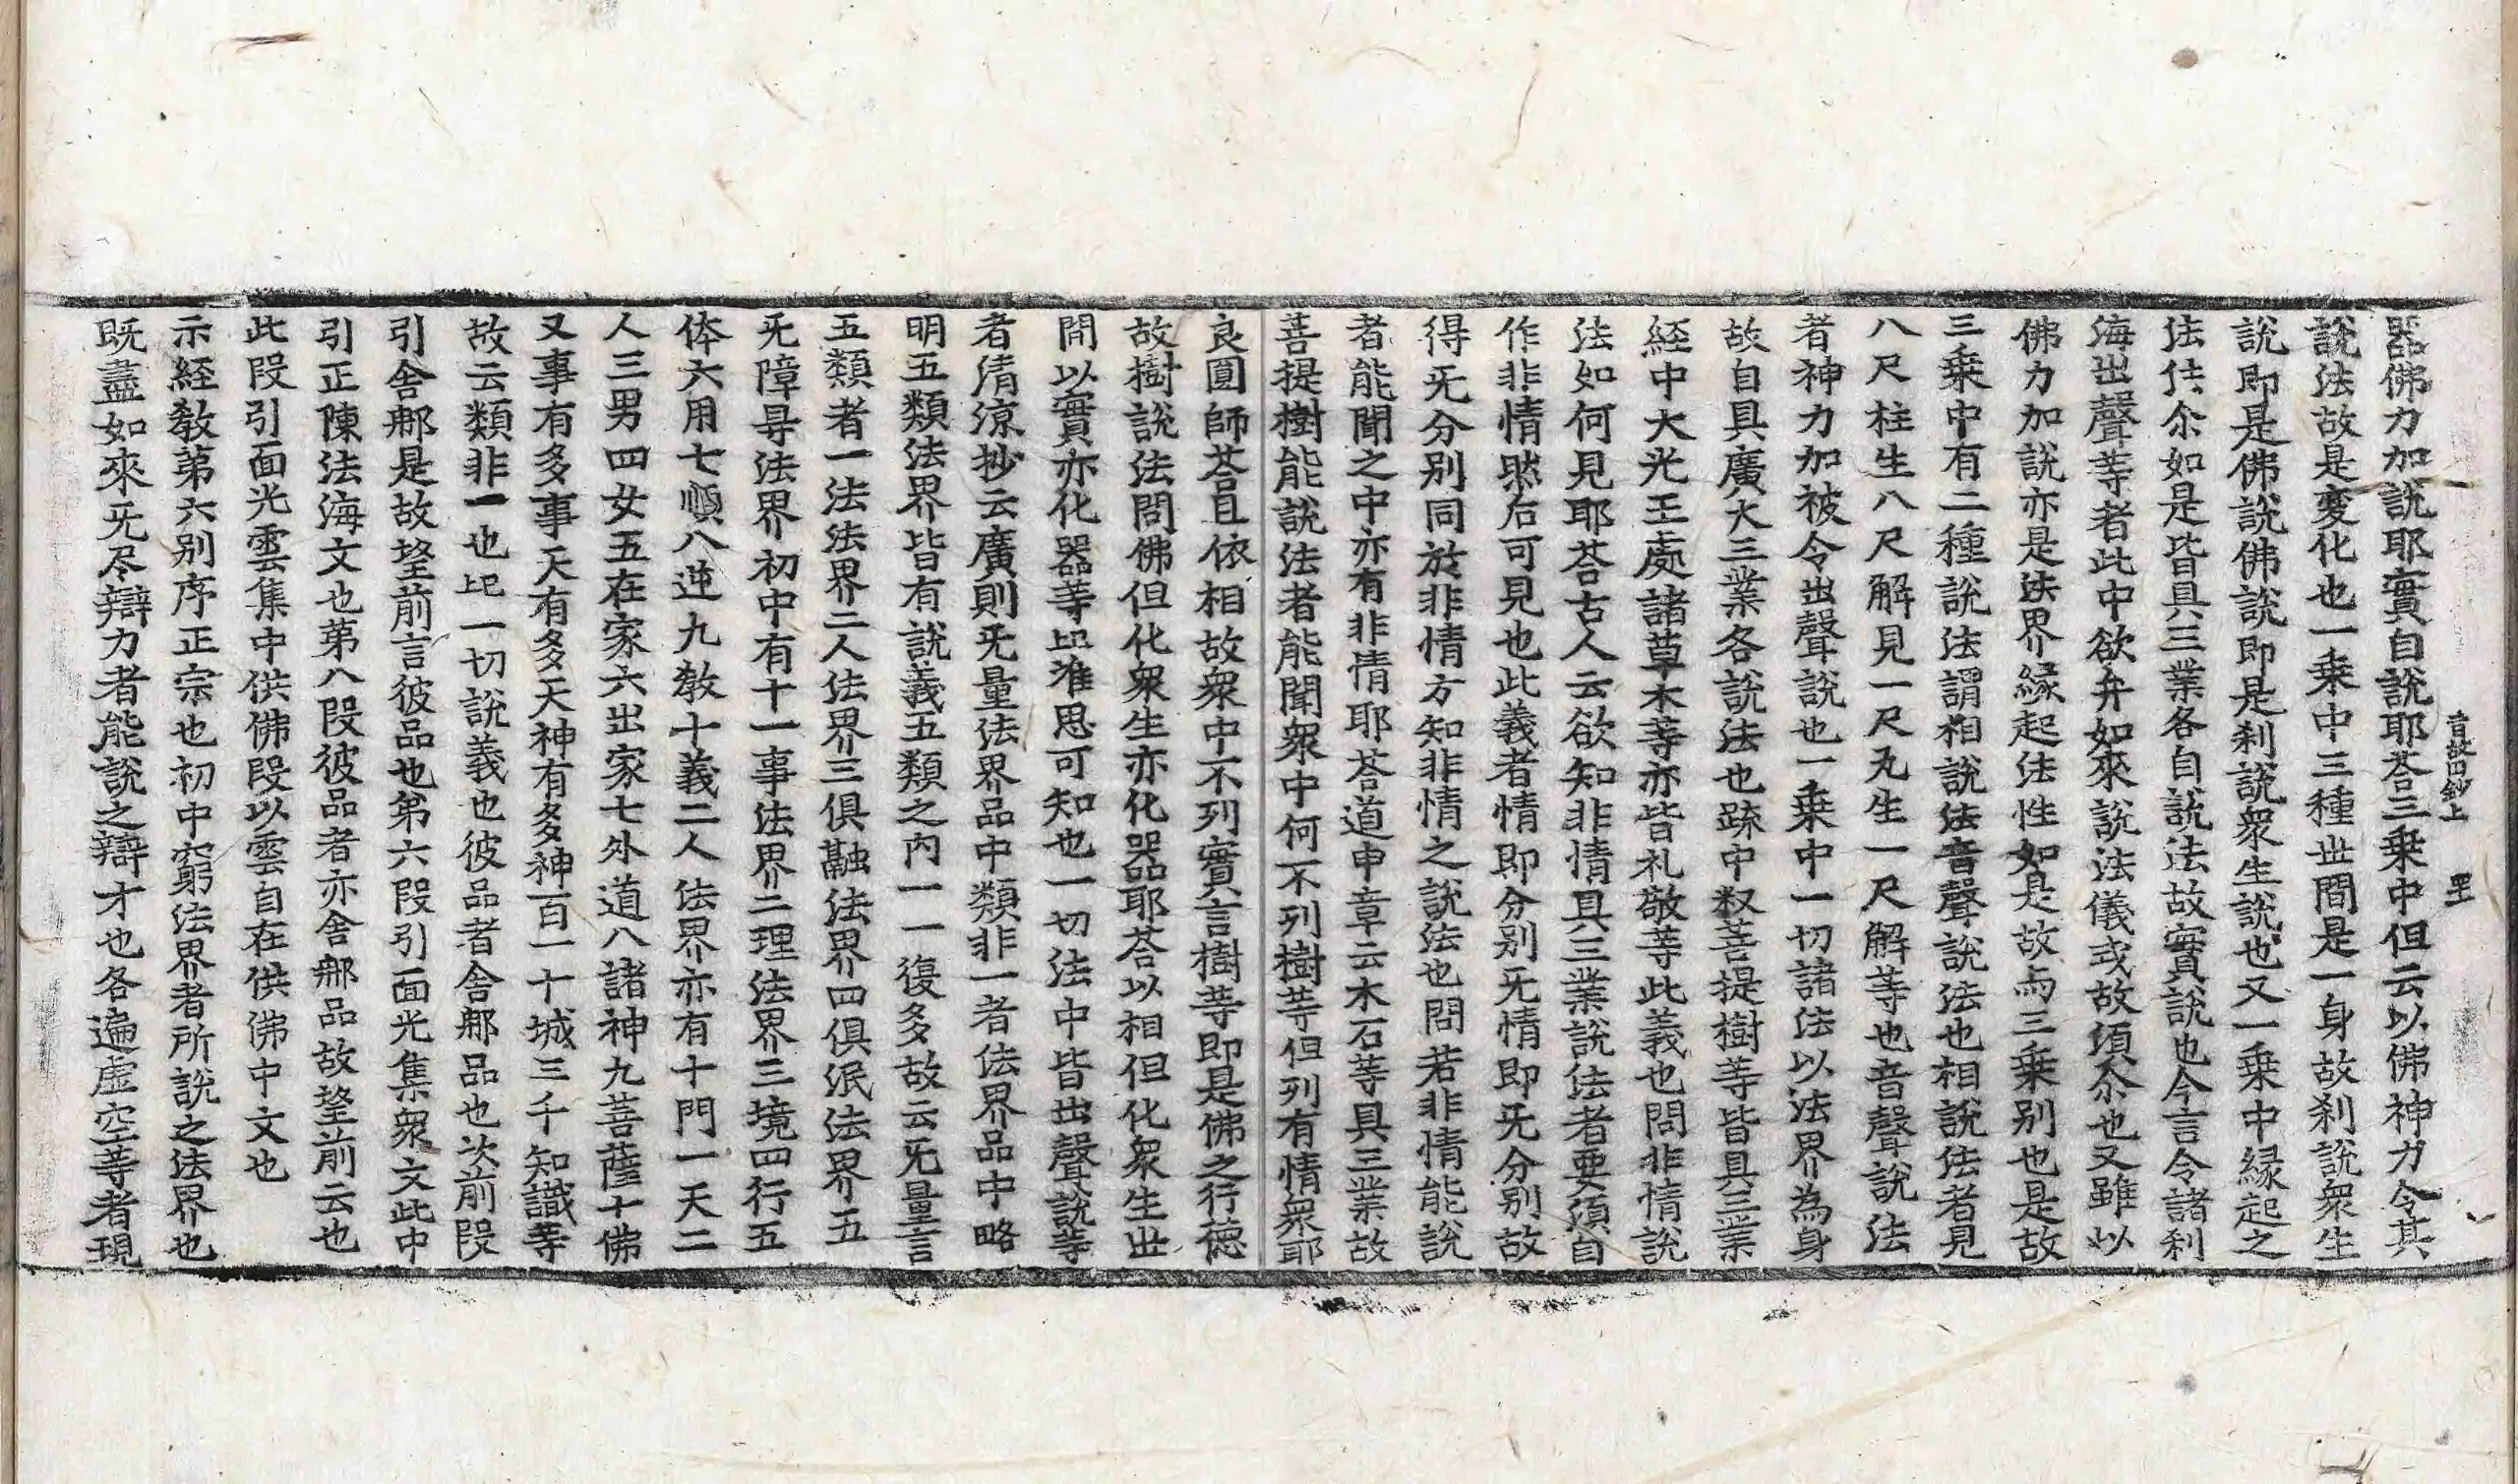 器佛力加說耶實自說耶荅三乗中但云以佛神力令其
說法故是変化也一乗中三種世間是一身故刹說衆生
說即是佛說佛說即是刹說衆生說也又一乗中縁起之
法法尒如是皆具三業各自說法故實說也今言令諸刹
海出聲䓁者此中欲弁如來說法儀式故湏尒也又雖以
佛力加說亦是法界縁起法性如是故与三乗別也是故
三乗中有二種說法謂相說法音聲說法也相說法者見
八尺柱生八尺解見一尺丸生一尺解䓁也音聲說法
者神力加被令出聲說也一乗中一切諸法以法界為身
故自具廣大三業各說法也䟽中叙菩提樹䓁皆具三業
経中大光王處諸草木䓁亦皆礼敬䓁此義也問非情說
法如何見耶荅古人云欲知非情具三業說法者要湏自
作非情然后可見也此義者情即分別无情即无分別故
得无分別同於非情方知非情之說法也問若非情能說
者能聞之中亦有非情耶荅道申章云木石䓁具三業故
菩提樹能說法者能聞衆中何不列樹䓁但列有情衆耶
良圓師荅且依相故衆中不列實言樹䓁即是佛之行徳
故樹說法問佛但化衆生亦化器耶荅以相但化衆生世
間以實亦化器䓁㠯准思可知也一切法中皆出聲說䓁
者清涼抄云廣則无量法界品中類非一者法界品中略
明五類法界皆有說義五類之内一一復多故云无量言
五類者一法法界二人法界三俱融法界四俱泯法界五
无障㝵法界初中有十一事法界二理法界三境四行五
体六用七順八逆九教十義二人法界亦有十門一天二
人三男四女五在家六出家七外道八諸神九菩薩十佛
又事有多事天有多天神有多神百一十城三千知識䓁
故云類非一也㠯一切說義也彼品者舍那品也次前段
引舍那是故望前言彼品也第六段引面光集衆文此中
引正陳法海文也第八段彼品者亦舍那品故望前云也
此段引面光雲集中供佛段以雲自在供佛中文也
示経教第六別序正宗也初中窮法界者所說之法界也
既盡如來无尽辯力者能說之辯才也各遍虚空䓁者現